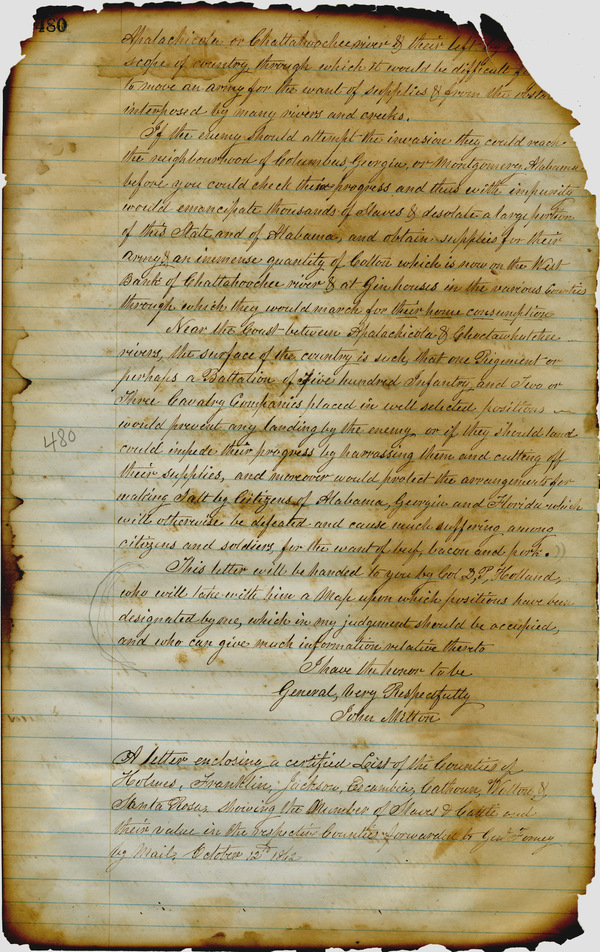 480
Apalachicola or Chattahoochee river & their left
scope of country through which it would be difficult
to move an army for the want of supplies & from the
interposed by many rivers and creeks.
If the enemy should attempt the invasion they could reach
the neighbourhood of Columbus Georgia, or Montgomery Alabama
before you could check their progress and thus with impunity
would emancipate thousands of Slaves & desolate a large portion
of this State and of Alabama, and obtain supplies for their
army & an immense quantity of Cotton which is now on the West
Bank of Chattahoochee river & at Gin houses in the various Counties
through which they would march for their home consumption
Near the Coast between Apalachicola & Choctawhatchee
rivers, the surface of the country is such, that one Regiment or
perhaps a Battalion of five hundred Infantry, and Two or
Three Cavalry Companies placed in well selected positions
would prevent any landing by the enemy, or if they should land
480
could impede their progress by harrassing them and cutting off
their supplies, and moreover would protect the arrangements for
making Salt by Citizens of Alabama, Georgia and Florida which
will otherwise be defeated and cause much suffering among
citizens and soldiers, for the want of beef, bacon and pork.
This letter will be handed to you by Col D. P. Holland,
who will take with him a Map upon which positions have been
designated by me, which in my judgement should be occupied,
and who can give much information relative thereto
I have the honor to be
General, Very Respectfully
John Milton
A letter enclosing a certified List of the Counties of
Holmes, Franklin, Jackson, Escambia, Calhoun, Walton, &
Santa Rosa, showing the Number of Slaves & Cattle and
their value in the respective Counties forwarded to Genl Forney
by Mail, October 12th 1862